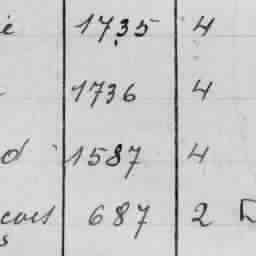 é 1735 4
1736 4
d 1587 4
cars 687 2 D
s